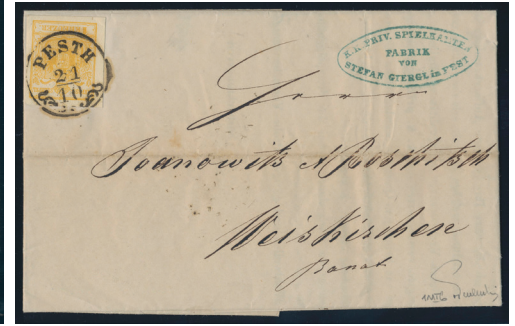 PESTH
21
10
K.K. PRIV. SPIELKARTEN
FABRIK
VON
STEFAN GIERGL in PEST
Herrn
Joanowits & Roschitsch
Weiskirchen
Banat